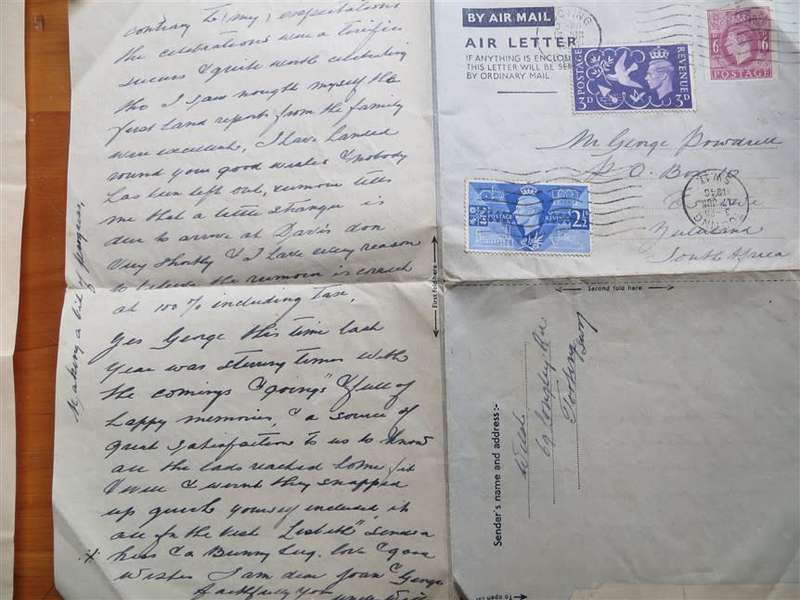 contrary to (my) expectations
the celebrations were a terrific
success & quite worth celebrating
tho I saw nought myself the
first hand reports from the family
were excellent, I have handed
round your good wishes & nobody
has been left out, rumour tells
me that a little stranger is
due to arrive at Davis don
very shortly & I have every reason
to believe the rumour is correct
at 100% including tax,
Yes George this time last
year was stirring times with
the comings & goings & full of
happy memories, & a source of
great satisfaction to us to know
all the lads reached home fit
& well & weren't they snapped
up quick yourself included it
all in the best "Lisbeth" sends a
kiss & a Bunny hug. love & good
wishes I am dear Joan & George
faithfully yours
Uncle Will
Making a bit of progress.
BY AIR MAIL
AIR LETTER
IF ANYTHING IS ENCLOSED
THIS LETTER WILL BE SENT
BY ORDINARY MAIL.
POSTAGE
REVENUE
3D
3D
6
6
POSTAGE
POSTAGE
2½
Mr George
P.O. Box 10
South Africa
TOOTING
1946
First fold here
Second fold here
Sender's name and address:-
69
Tooting
To open cut